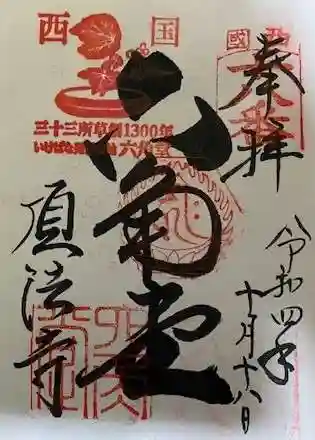 奉拝
令和四年
十月十八日
西国
三十三所草創1300年
いけばな発祥の地 六角堂
六角堂
頂法寺